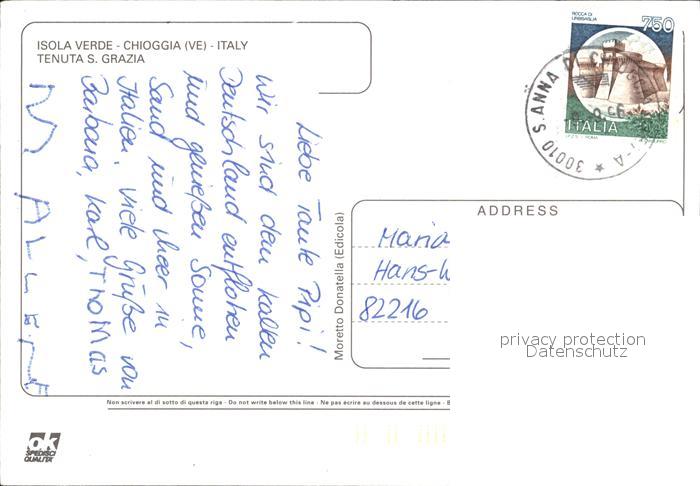 ISOLA VERDE - CHIOGGIA (VE) - ITALY
TENUTA S. GRAZIA
Liebe Tante Pipi!
Wir sind dem kalten
Deutschland entflohen
und genießen Sonne,
Sand und Meer in
Italien. Viele Grüße von
Barbara, Karl, THOMAS
Moretto Donatella (Edicola)
ROCCA DI
URBISAGLIA
750
ITALIA
30010 S. ANNA DI CHIOGGIA
ADDRESS
Maria
Hans-
82216
privacy protection
Datenschutz
Non scrivere al di sotto di questa riga - Do not write below this line - Ne pas écrire au dessous de cette ligne -
ok
SPEDISCI
QUALITA'